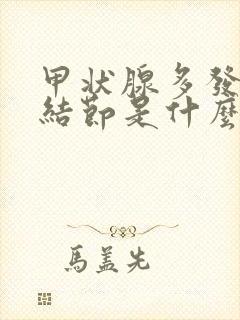 甲状腺多發
結節是什麼
馬蓋先